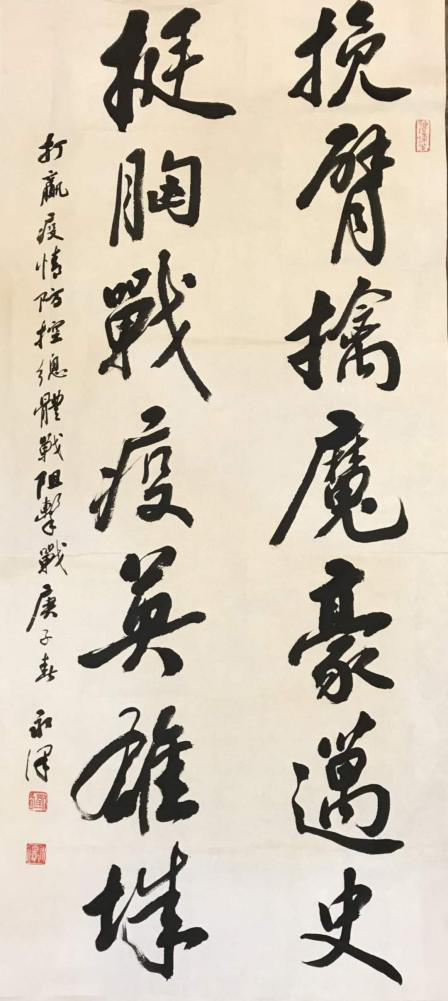 挽臂擒魔豪邁史
挺胸戰疫英雄城
打贏疫情防控總體戰阻擊戰庚子春 永澤